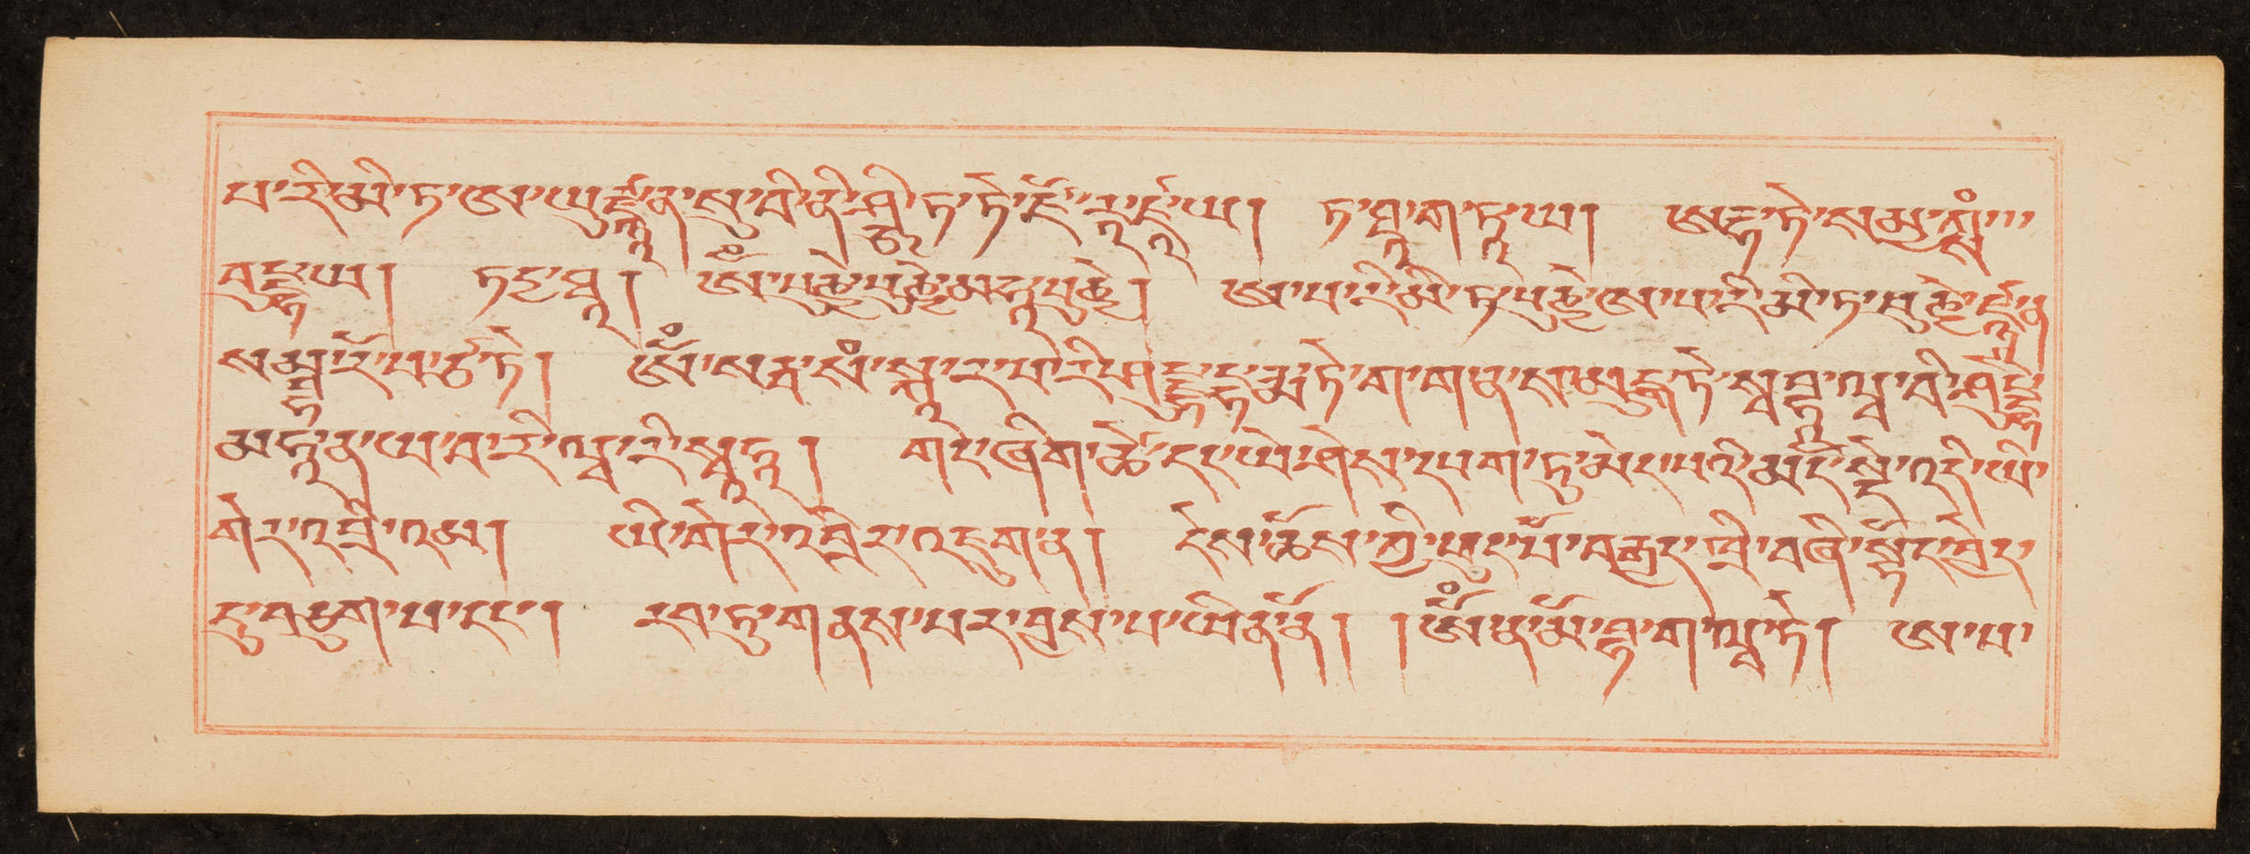 པ་རི་མི་ཏ་ཨ་ཡུརྫྙཱན་སུ་བི་ནི་ཤྩི་ཏ་ཏེ་ཛོ་རཱ་ཛཱ་ཡ། ཏ་ཐཱ་ག་ཏཱ་ཡ། ཨརྷ་ཏེ་སམྱཀྶཾ་་་
བུདྡྷ་ཡ། ཏདྱ་ཐཱ། ཨོཾ་པུཎྱེ་པུཎྱེ་མ་ཧཱ་པུཎྱེ། ཨ་པ་རི་མི་ཏ་པུཎྱེ་ཨ་པ་རི་མི་ཏ་པུཎྱེ་ཛྙཱན་
སམྦྷཱ་རོ་པ་ཙི་ཏེ། ཨོཾ་སརྦ་སཾ་སྐཱ་ར་པ་རི་ཤུདྡྷ་དྷརྨ་ཏེ་ག་ག་ན་ས་མུངྒ་ཏེ་སྭ་བྷཱ་ཝ་བི་ཤུདྡྷེ་
མ་ཧཱ་ན་ཡ་པ་རི་ཝཱ་རི་སྭཱ་ཧཱ། གང་ཞིག་ཚེ་དང་ཡེ་ཤེས་དཔག་ཏུ་མེད་པའི་མདོ་སྡེ་འདི་ཡི་
གེར་འབྲི་འམ། ཡི་གེར་འབྲིར་འཇུག་ན། དེས་ཆོས་ཀྱི་ཕུང་པོ་བརྒྱད་ཁྲི་བཞི་སྟོང་བྲིར་
དུ་བཅུག་པ་དང་། རབ་ཏུ་གནས་པར་བྱས་པ་ཡིན་ནོ། །ཨོཾ་ན་མོ་བྷ་ག་ཝ་ཏེ། ཨ་པ་